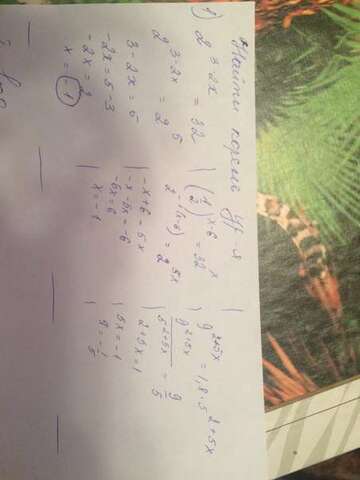 Найти корень ур-я
1) 2^{3-2x} = 32
2^{3-2x} = 2^5
3-2x=5
-2x=5-3
-2x=2
x=-1
(1/2)^{x-6} = 32^x
2^{-1(x-6)} = 2^{5x}
-x+6=5x
-x-5x=-6
-6x=6
x=-1
9^{2+5x} = 1,8·5^{2+5x}
9^{2+5x}/5^{2+5x} = 9/5
2+5x=1
5x=-1
9=-1/5